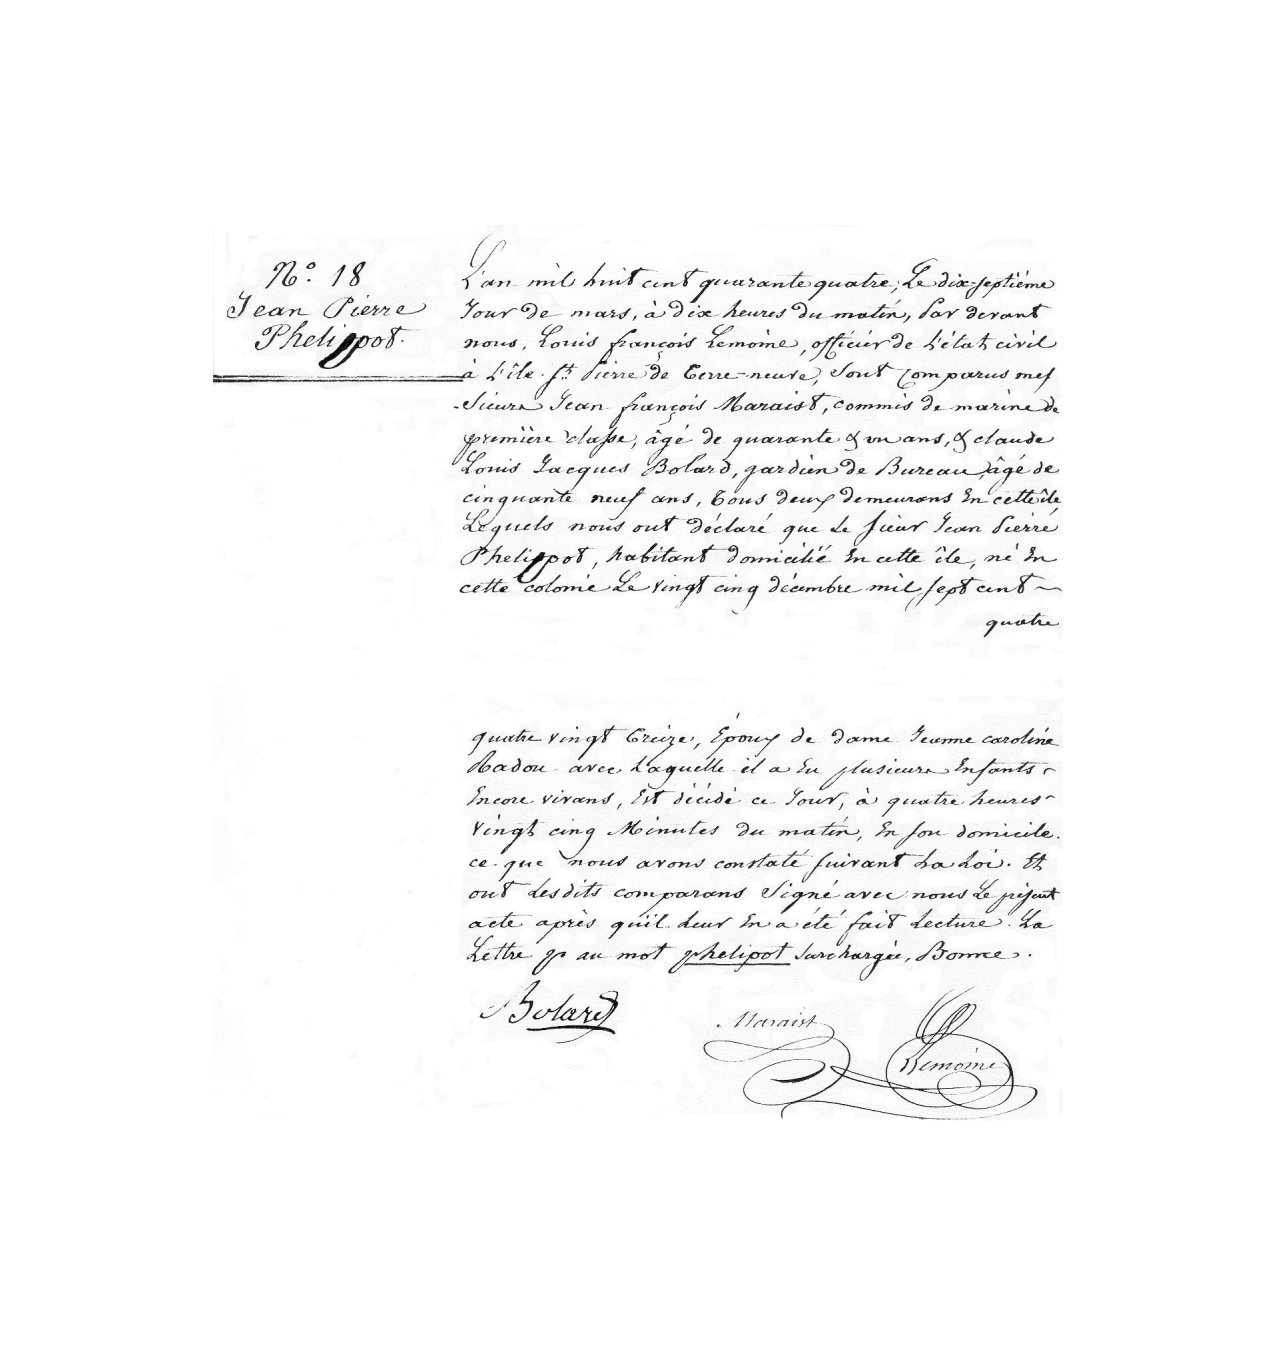 N.° 18
Jean Pierre
Phelippot.
L'an mil huit cent quarante quatre, Le dix-septiéme
Jour de mars, à dix heures du matin, Par devant
nous, Louis françois Lemoine, officier de L'état civil
à L'île St. Pierre de Terre-neuve, Sont Comparus mes
-Sieurs Jean françois Maraist, commis de marine de
première classe, âgé de quarante & un ans, & claude
Louis Jacques Bolard, gardien de Bureau, âgé de
cinquante neuf ans, Tous deux demeurans En cette île,
Lequels nous ont déclaré que Le Sieur Jean Pierre
Phelippot, habitant domicilié En cette île, né En
cette colonie Le vingt cinq décembre mil sept cent ~
quatre
quatre vingt Treize, Époux de dame Jeanne caroline
Radou avec Laquelle il a Eu plusieurs Enfants
Encore vivans, Est décédé ce Jour, à quatre heures
vingt cinq Minutes du matin, En son domicile.
ce que nous avons constaté suivant La Loi. Et
ont Lesdits comparans Signé avec nous Le présent
acte après qu'il Leur En a été fait Lecture. La
Lettre p au mot phelipot Surchargée, Bonne.
Bolard
Maraist
Lemoine